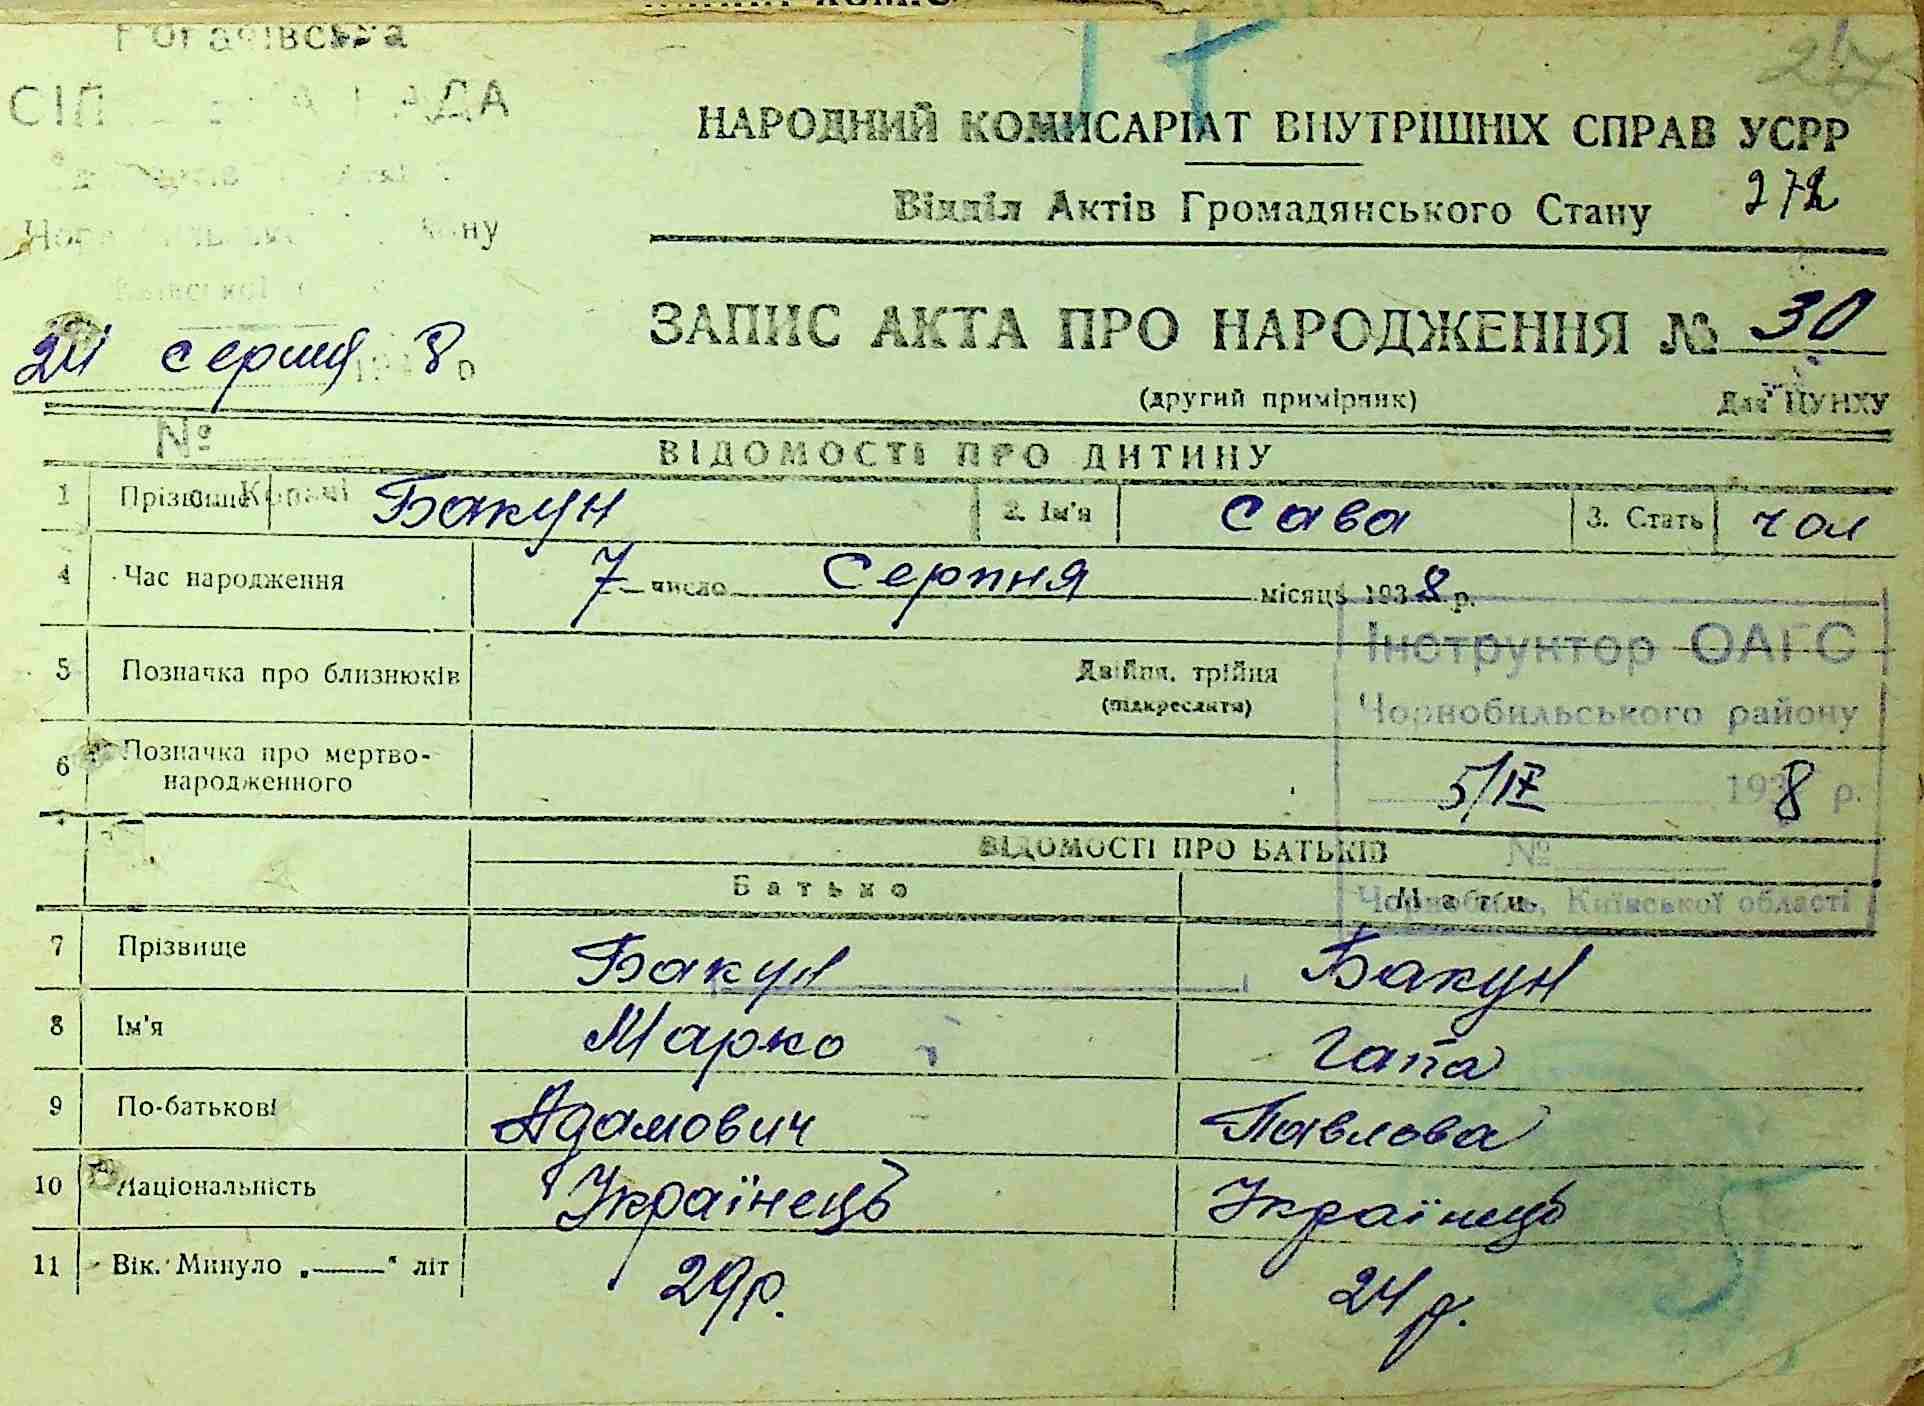 НАРОДНИЙ КОМИСАРІАТ ВНУТРІШНІХ СПРАВ УСРР
Відділ Актів Громадянського Стану 272
ЗАПИС АКТА ПРО НАРОДЖЕННЯ № 30
24 серпня 8
(другий примірник) Для ЦУНХУ
№
ВІДОМОСТІ ПРО ДИТИНУ
1 Прізвище Бакун 2. Ім'я Сава 3. Стать чол
4 Час народження 7 число Серпня місяць 1938 р.
Інструктор ОАГС
5 Позначка про близнюків Двійня, трійня
(підкреслити)
Чорнобильського району
6 Позначка про мертво-
народженного
5/IX 1938 р.
ВІДОМОСТІ ПРО БАТЬКІВ
№
Батько Мати
Чорнобиль, Київської області
7 Прізвище Бакун Бакун
8 Ім'я Марко Гапа
9 По-батькові Адамович Павлова
10 Національність Українець Українець
11 Вік. Минуло „——" літ 29 р. 24 р.